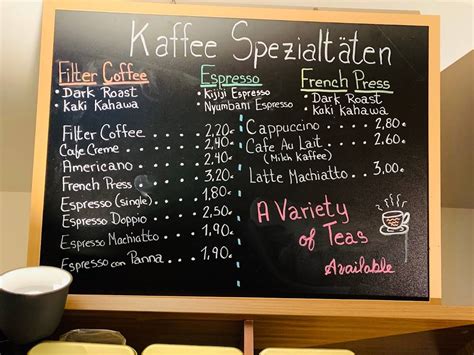 Kaffee Spezialtäten
Filter Coffee
• Dark Roast
• Kaki Kahawa
Espresso
• Kijiji Espresso
• Nyumbani Espresso
French Press
• Dark Roast
• Kaki Kahawa
Filter Coffee . . . 2,20€
Cafe Creme . . . . 2,40€
Americano . . . . 2,40€
French Press . . . 3,20€
Espresso (single) . . . 1,80€
Espresso Doppio . . . 2,50€
Espresso Machiatto . . 1,90€
Espresso con Panna . . 1,90€
Cappuccino . . . 2,80€
Cafe Au Lait . . . 2,60€
(Milch Kaffee)
Latte Machiatto . . 3,00€
A Variety
of Teas
Available